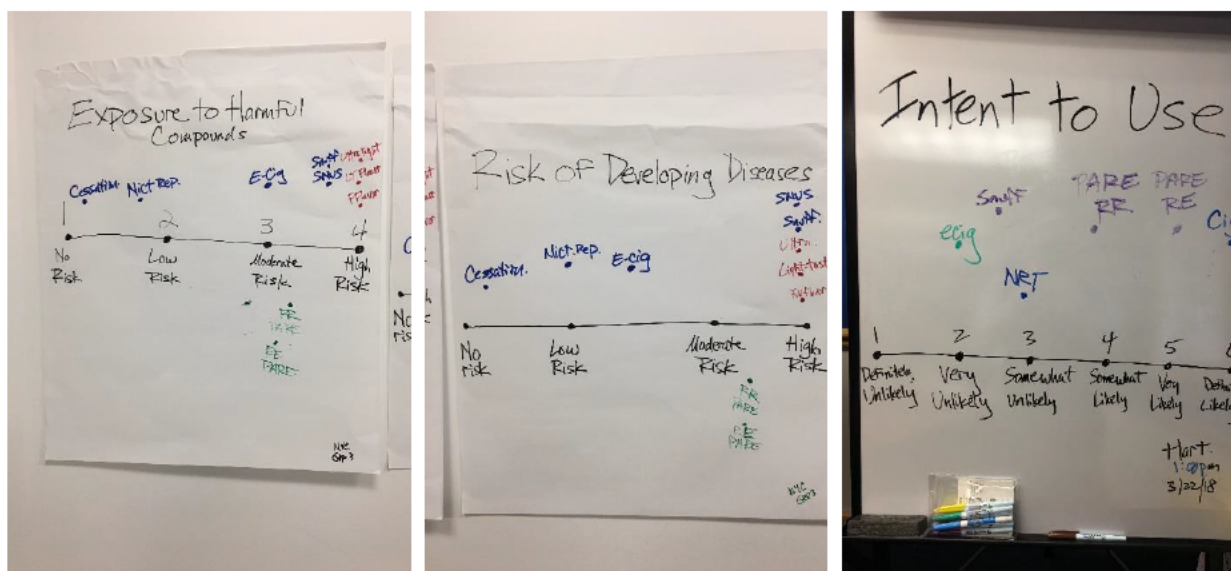 Exposure to Harmful
Compounds
Cessation.
Nict Rep.
E-Cig
Snuff
SNUS
Ultra light
LT Flavor
F Flavor
1
2
3
4
No
Risk
Low
Risk
Moderate
Risk
High
Risk
RR
PARE
RE
PARE
NYC
Grp 3
No
risk
Risk of Developing Diseases
SNUS
Snuff.
Ultra.
Light-tast
Fulflavor
Cessation.
Nict. Rep.
E-Cig
No
risk
Low
Risk
Moderate
Risk
High
Risk
RR
PARE
RE
PARE
NYC
Grp 3
Intent to Use
Snuff
PARE
RR
PARE
RE
ecig
Cig
NRT
1
2
3
4
5
Definitely
Unlikely
Very
Unlikely
Somewhat
Unlikely
Somewhat
Likely
Very
Likely
Likely
Hart.
1:00pm
3/22/18